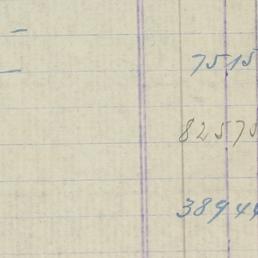 —
— 7515
82575
38944